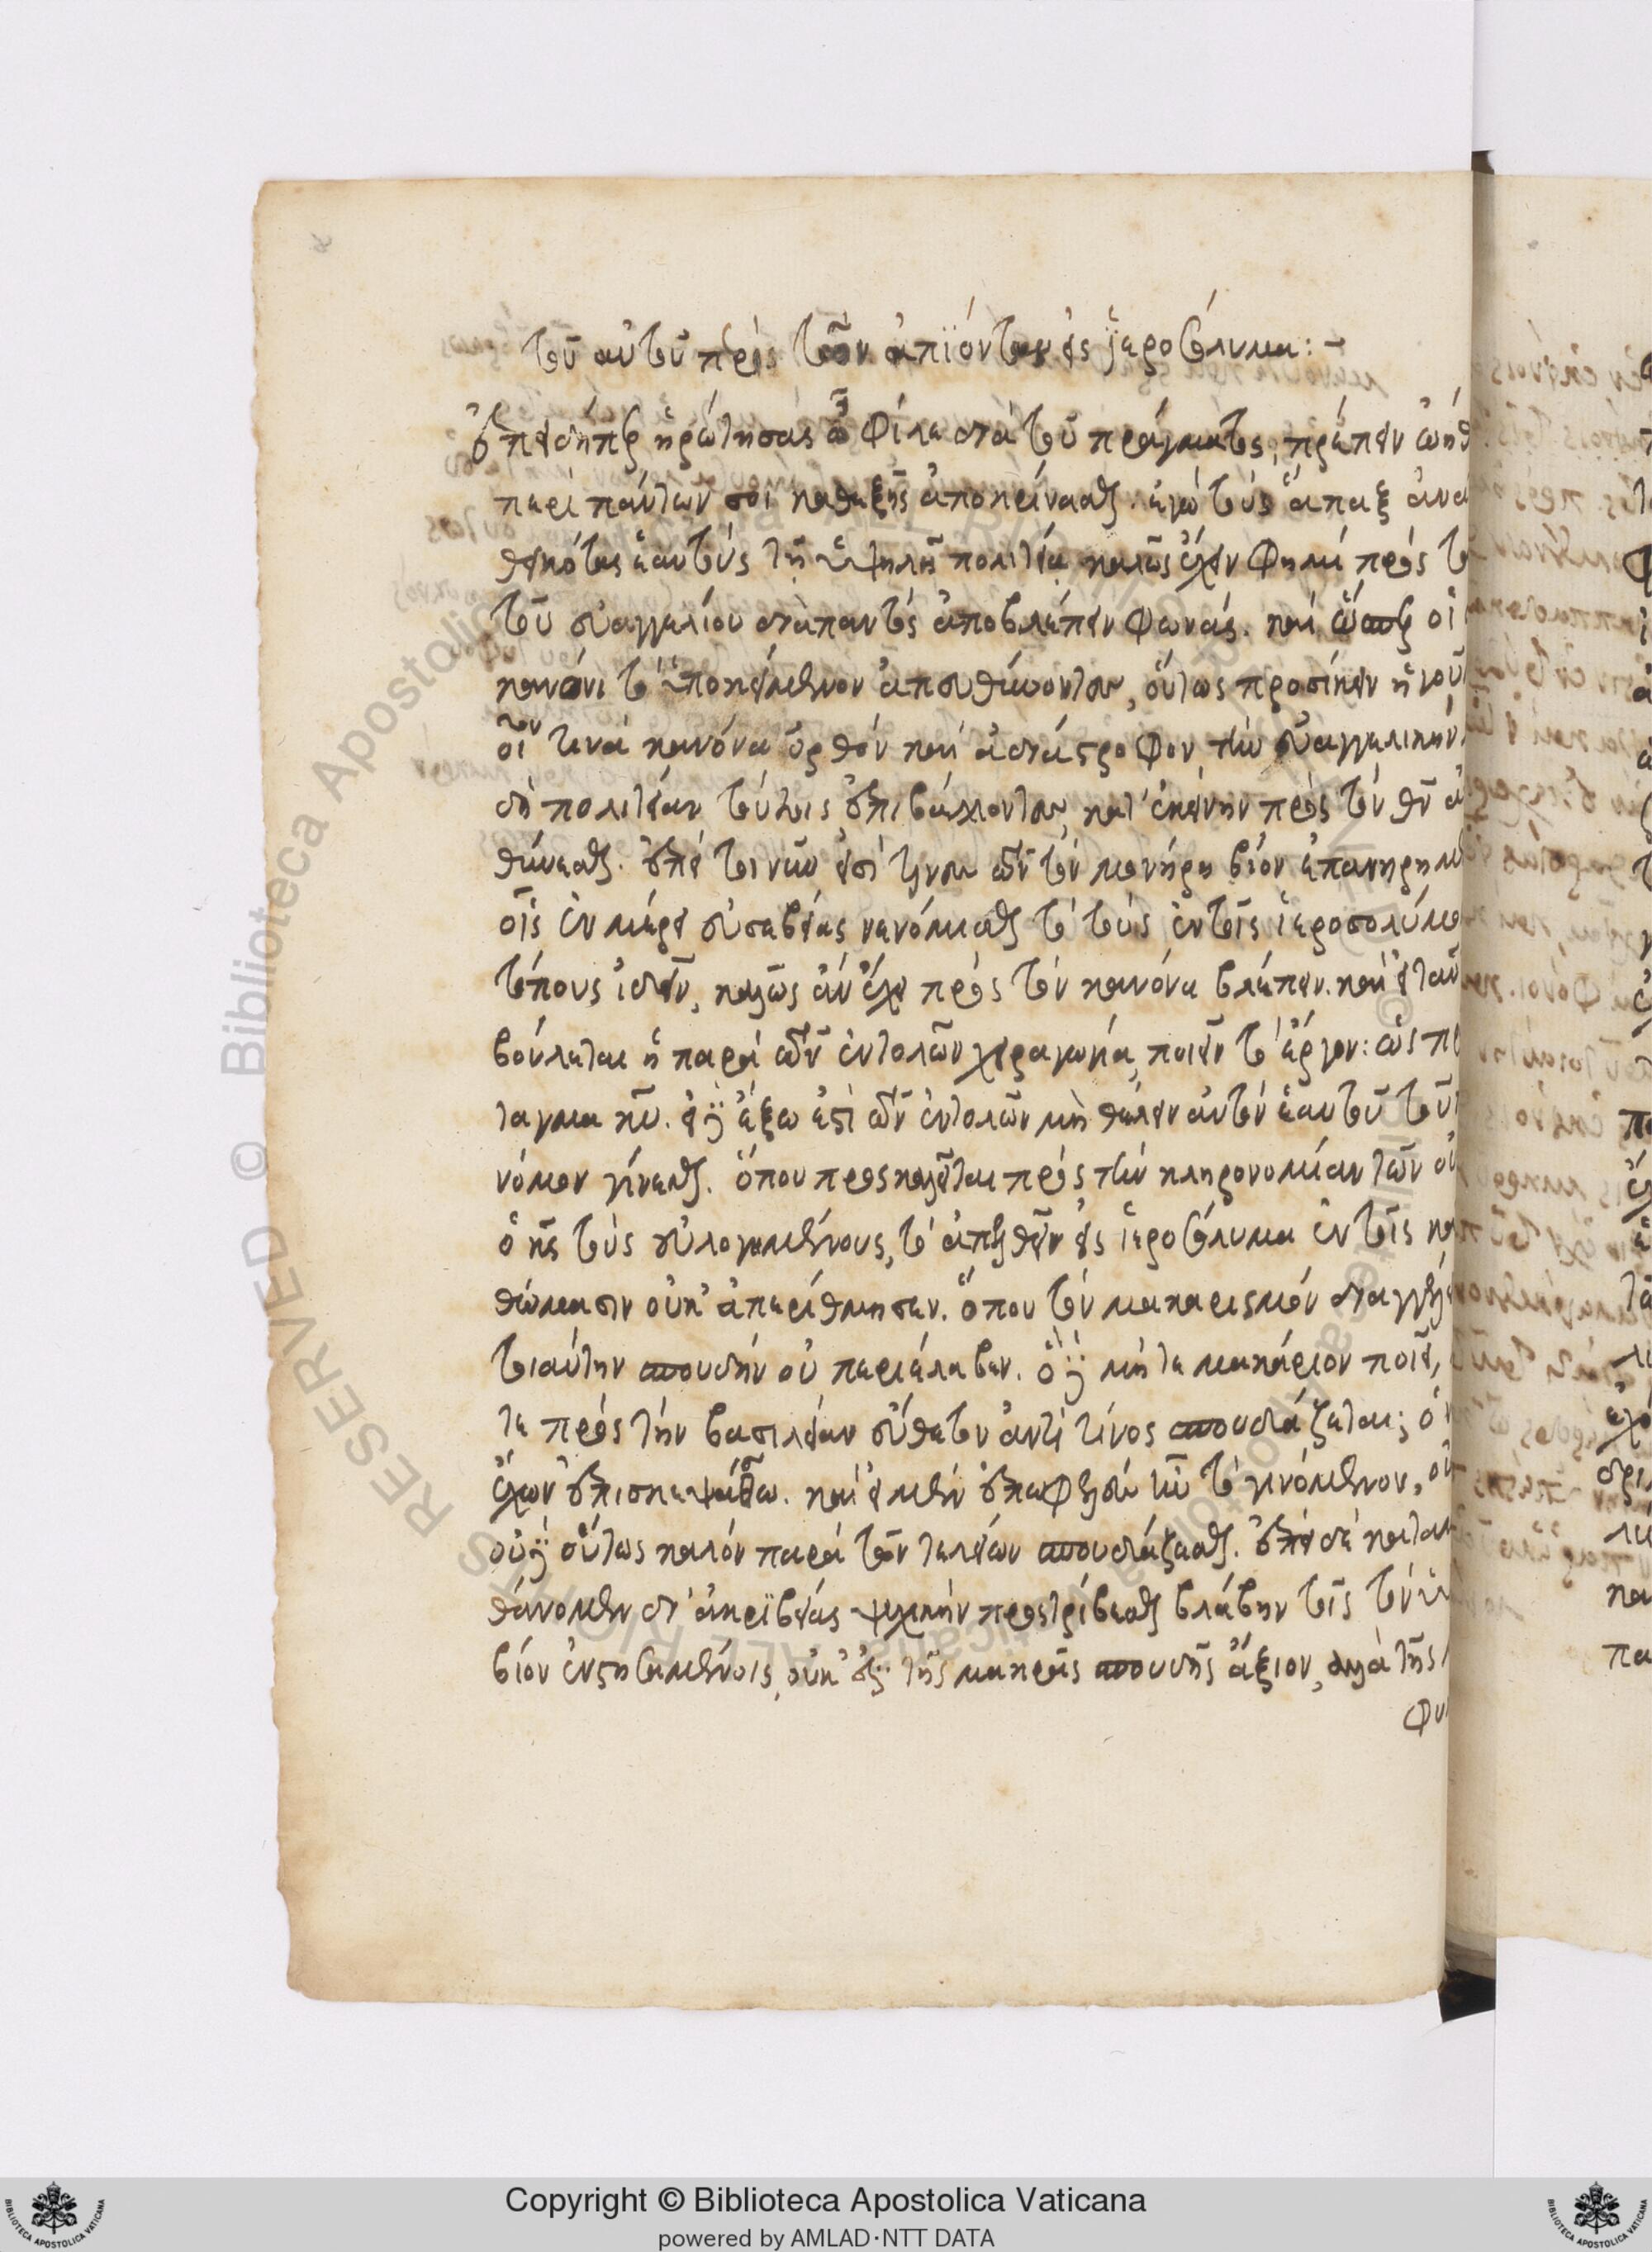 τοῦ αὐτοῦ πρὸς τῶν ἀπϊόντων εἰς ἱεροσόλυμα:-
ἐπειδήπερ ἠρώτησας ὦ φίλε διὰ τοῦ γράμματος, πρέπειν ὠήθ
περὶ πάντων σοι καθεξῆς ἀποκρίνασθαι. ἐγὼ τοὺς ἅπαξ ἀνα
θεικότας ἑαυτοὺς τῇ ὑψηλῇ πολιτείᾳ καλῶς ἔχειν φημὶ πρὸς τὰ
τοῦ εὐαγγελίου διαπαντὸς ἀποβλέπειν φωνάς. καὶ ὥσπερ οἱ
κανόνι τὸ ὑποκείμενον ἀπευθύνοντες, οὕτως προσήκειν ἡγοῦ
οἷόν τινα κανόνα ὀρθὸν καὶ ἀδιάστροφον, τὴν εὐαγγελικὴν
δὴ πολιτείαν τούτοις ἐπιβάλλοντες, κατ' ἐκείνην πρὸς τὸν θν ἀ
θύνεσθαι. ἐπεὶ τοίνυν εἰσί τινες τῶν τὸν μονήρη βίον ἐπανῃρημέ
οἷς ἐν μέρει εὐσεβείας νενόμισθαι τὸ τοὺς ἐν τοῖς ἱεροσολύμο
τόπους ἰδεῖν, καλῶς ἂν ἔχει πρὸς τὸν κανόνα βλέπειν. καὶ εἰ ταῦ
βούλεται ἡ παρὰ τῶν ἐντολῶν χειραγωγία, ποιεῖν τὸ ἔργον: ὡς πρ
ταγμα κυ. εἰ δὲ ἔξω ἐστὶ τῶν ἐντολῶν μὴ θέλειν αὐτὸν ἑαυτοῦ τοῦ
νόμον γίνεσθαι. ὅπου προσκαλεῖται πρὸς τὴν κληρονομίαν τῶν οὐ
ὁ κς τοὺς εὐλογημένους, τὸ ἀπελθεῖν εἰς ἱεροσόλυμα ἐν τοῖς κα
θώμασιν οὐκ' ἀπερίθμησεν. ὅπου τὸν μακαρισμὸν διαγγέλ
τοιαύτην σπουδὴν οὐ περιέλαβεν. ὃ δὲ μήτε μακάριον ποιεῖ,
τε πρὸς τὴν βασιλείαν εὔθετον ἀντί τίνος σπουδάζεται; ὁ
ἔχων ἐπισκεψάσθω. καὶ εἰ μὲν ἐπωφελὲς ἦν τὸ γινόμενον, οὐ
οὐδὲ οὕτως καλὸν παρὰ τῶν τελείων σπουδάζεσθαι. ἐπεὶ δὲ καταμ
θάνομεν δι' ἀκρϊβείας ψυχικὴν προστρίβεσθαι βλάβην τοῖς τὸν ἀ
βίον ἐνστησαμένοις, οὐκ' ἔστι τῆς μακρᾶς σπουδῆς ἄξιον, ἀλλὰ τῆς
φυ
Copyright © Biblioteca Apostolica Vaticana
powered by AMLAD·NTT DATA